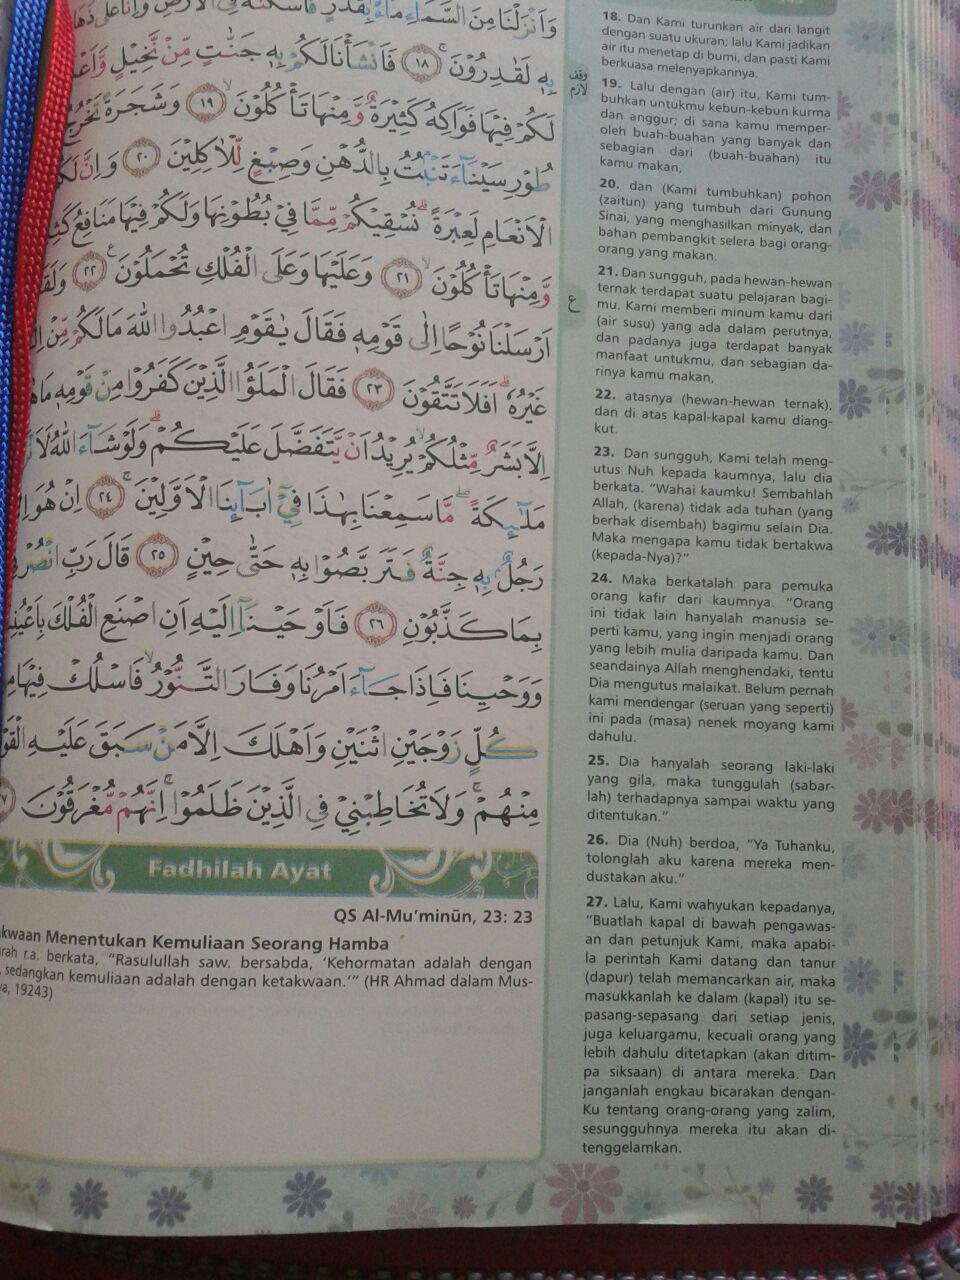 وَاَنْزَلْنَا مِنَ السَّمَاۤءِ مَاۤءًۢ بِقَدَرٍ فَاَسْكَنّٰهُ فِى الْاَرْضِ وَاِنَّا عَلٰى
بِهٖ لَقٰدِرُوْنَ ۚ ١٨ فَاَنْشَأْنَا لَكُمْ بِهٖ جَنّٰتٍ مِّنْ نَّخِيْلٍ
لَكُمْ فِيْهَا فَوَاكِهُ كَثِيْرَةٌ وَّمِنْهَا تَأْكُلُوْنَ ۙ ١٩ وَشَجَرَةً
طُوْرِ سَيْنَاۤءَ تَنْۢبُتُ بِالدُّهْنِ وَصِبْغٍ لِّلْاٰكِلِيْنَ ٢٠ وَاِنَّ
الْاَنْعَامِ لَعِبْرَةً ۗ نُسْقِيْكُمْ مِّمَّا فِيْ بُطُوْنِهَا وَلَكُمْ فِيْهَا مَنَافِعُ
وَّمِنْهَا تَأْكُلُوْنَ ۙ ٢١ وَعَلَيْهَا وَعَلَى الْفُلْكِ تُحْمَلُوْنَ ۚ ٢٢
اَرْسَلْنَا نُوْحًا اِلٰى قَوْمِهٖ فَقَالَ يٰقَوْمِ اعْبُدُوا اللّٰهَ مَا لَكُمْ مِّنْ
غَيْرُهٗ ۗ اَفَلَا تَتَّقُوْنَ ٢٣ فَقَالَ الْمَلَؤُا الَّذِيْنَ كَفَرُوْا مِنْ قَوْمِهٖ
اِلَّا بَشَرٌ مِّثْلُكُمْ ۙ يُرِيْدُ اَنْ يَّتَفَضَّلَ عَلَيْكُمْ ۗ وَلَوْ شَاۤءَ اللّٰهُ
مَلٰۤىِٕكَةً ۖ مَّا سَمِعْنَا بِهٰذَا فِيْٓ اٰبَاۤىِٕنَا الْاَوَّلِيْنَ ۚ ٢٤ اِنْ هُوَ
رَجُلٌۢ بِهٖ جِنَّةٌ فَتَرَبَّصُوْا بِهٖ حَتّٰى حِيْنٍ ٢٥ قَالَ رَبِّ
بِمَا كَذَّبُوْنِ ٢٦ فَاَوْحَيْنَآ اِلَيْهِ اَنِ اصْنَعِ الْفُلْكَ
وَوَحْيِنَا فَاِذَا جَاۤءَ اَمْرُنَا وَفَارَ التَّنُّوْرُ ۙ فَاسْلُكْ فِيْهَا
كُلٍّ زَوْجَيْنِ اثْنَيْنِ وَاَهْلَكَ اِلَّا مَنْ سَبَقَ عَلَيْهِ
مِنْهُمْ ۚ وَلَا تُخَاطِبْنِيْ فِى الَّذِيْنَ ظَلَمُوْا ۚ اِنَّهُمْ مُّغْرَقُوْنَ
وقف
لازم
ع
Fadhilah Ayat
QS Al-Mu'minūn, 23: 23
Menentukan Kemuliaan Seorang Hamba
r.a. berkata, "Rasulullah saw. bersabda, 'Kehormatan adalah dengan
sedangkan kemuliaan adalah dengan ketakwaan.'" (HR Ahmad dalam Mus-
19243)
18. Dan Kami turunkan air dari langit
dengan suatu ukuran; lalu Kami jadikan
air itu menetap di bumi, dan pasti Kami
berkuasa melenyapkannya.
19. Lalu dengan (air) itu, Kami tum-
buhkan untukmu kebun-kebun kurma
dan anggur; di sana kamu memper-
oleh buah-buahan yang banyak dan
sebagian dari (buah-buahan) itu
kamu makan,
20. dan (Kami tumbuhkan) pohon
(zaitun) yang tumbuh dari Gunung
Sinai, yang menghasilkan minyak, dan
bahan pembangkit selera bagi orang-
orang yang makan.
21. Dan sungguh, pada hewan-hewan
ternak terdapat suatu pelajaran bagi-
mu. Kami memberi minum kamu dari
(air susu) yang ada dalam perutnya,
dan padanya juga terdapat banyak
manfaat untukmu, dan sebagian da-
rinya kamu makan,
22. atasnya (hewan-hewan ternak),
dan di atas kapal-kapal kamu diang-
kut.
23. Dan sungguh, Kami telah meng-
utus Nuh kepada kaumnya, lalu dia
berkata. "Wahai kaumku! Sembahlah
Allah, (karena) tidak ada tuhan (yang
berhak disembah) bagimu selain Dia.
Maka mengapa kamu tidak bertakwa
(kepada-Nya)?"
24. Maka berkatalah para pemuka
orang kafir dari kaumnya. "Orang
ini tidak lain hanyalah manusia se-
perti kamu, yang ingin menjadi orang
yang lebih mulia daripada kamu. Dan
seandainya Allah menghendaki, tentu
Dia mengutus malaikat. Belum pernah
kami mendengar (seruan yang seperti)
ini pada (masa) nenek moyang kami
dahulu.
25. Dia hanyalah seorang laki-laki
yang gila, maka tunggulah (sabar-
lah) terhadapnya sampai waktu yang
ditentukan."
26. Dia (Nuh) berdoa, "Ya Tuhanku,
tolonglah aku karena mereka men-
dustakan aku."
27. Lalu, Kami wahyukan kepadanya,
"Buatlah kapal di bawah pengawas-
an dan petunjuk Kami, maka apabi-
la perintah Kami datang dan tanur
(dapur) telah memancarkan air, maka
masukkanlah ke dalam (kapal) itu se-
pasang-sepasang dari setiap jenis,
juga keluargamu, kecuali orang yang
lebih dahulu ditetapkan (akan ditim-
pa siksaan) di antara mereka. Dan
janganlah engkau bicarakan dengan-
Ku tentang orang-orang yang zalim,
sesungguhnya mereka itu akan di-
tenggelamkan.